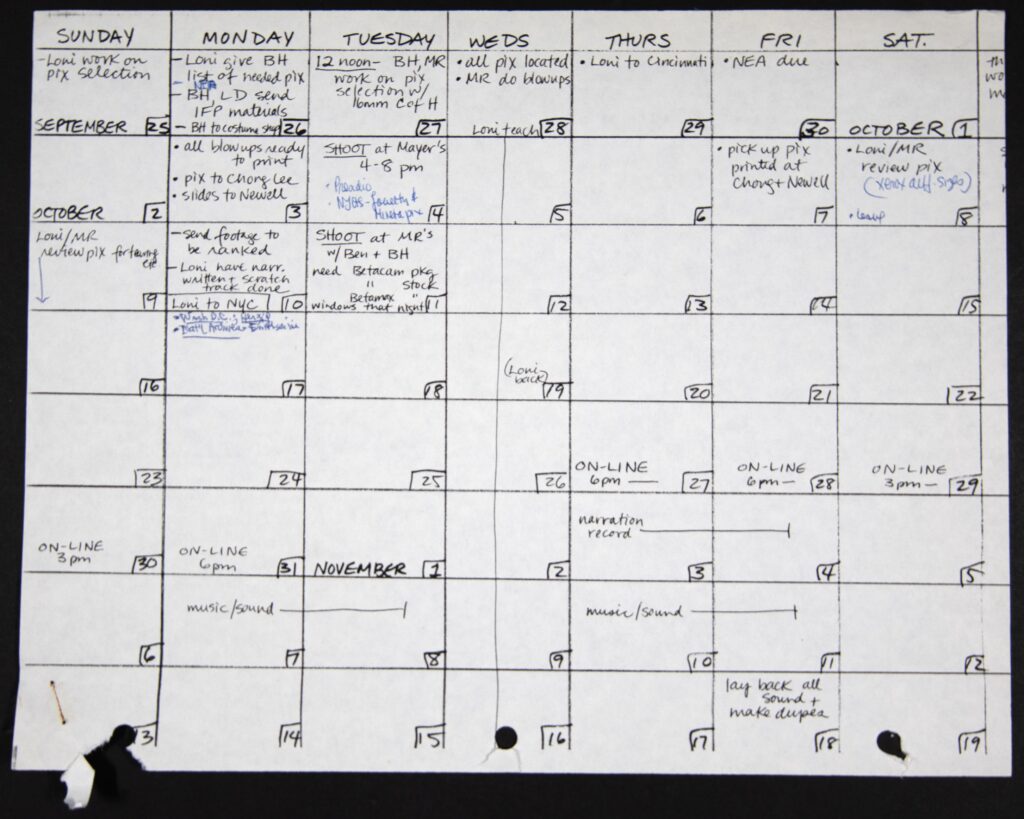 SUNDAY MONDAY TUESDAY WEDS THURS FRI SAT.
-Loni work on
pix selection
SEPTEMBER 25
- Loni give BH
list of needed pix
- NEA
- BH, LD send
IFP materials
- BH to costume shop 26
12 noon- BH, MR
work on pix
selection w/
16mm C of H
27
• all pix located
• MR do blowups
Loni teach 28
• Loni to Cincinnati
29
• NEA due
30
OCTOBER 1
OCTOBER 2
• all blowups ready
to print
• pix to Chong Lee
• slides to Newell
3
SHOOT at Mayer's
4-8 pm
4
5
6
• pick up pix
printed at
Chong + Newell
7
• Loni/MR
review pix
(xerox diff. sizes)
8
Loni/MR
review pix for
9
- send footage to
be ranked
- Loni have narr.
written + scratch
track done
Loni to NYC 10
SHOOT at MR's
w/ Ben + BH
need Betacam pkg
" stock
Betamax "
windows that night 11
12
13
14
15
16
17
18
(Loni
back) 19
20
21
22
23
24
25
26
ON-LINE
6pm — 27
ON-LINE
6pm — 28
ON-LINE
3pm — 29
ON-LINE
3pm 30
ON-LINE
6pm 31
NOVEMBER 1
2
narration
record
3
4
5
6
music/sound
7
8
9
music/sound
10
11
12
13
14
15
16
17
lay back all
sound +
make dupes
18
19